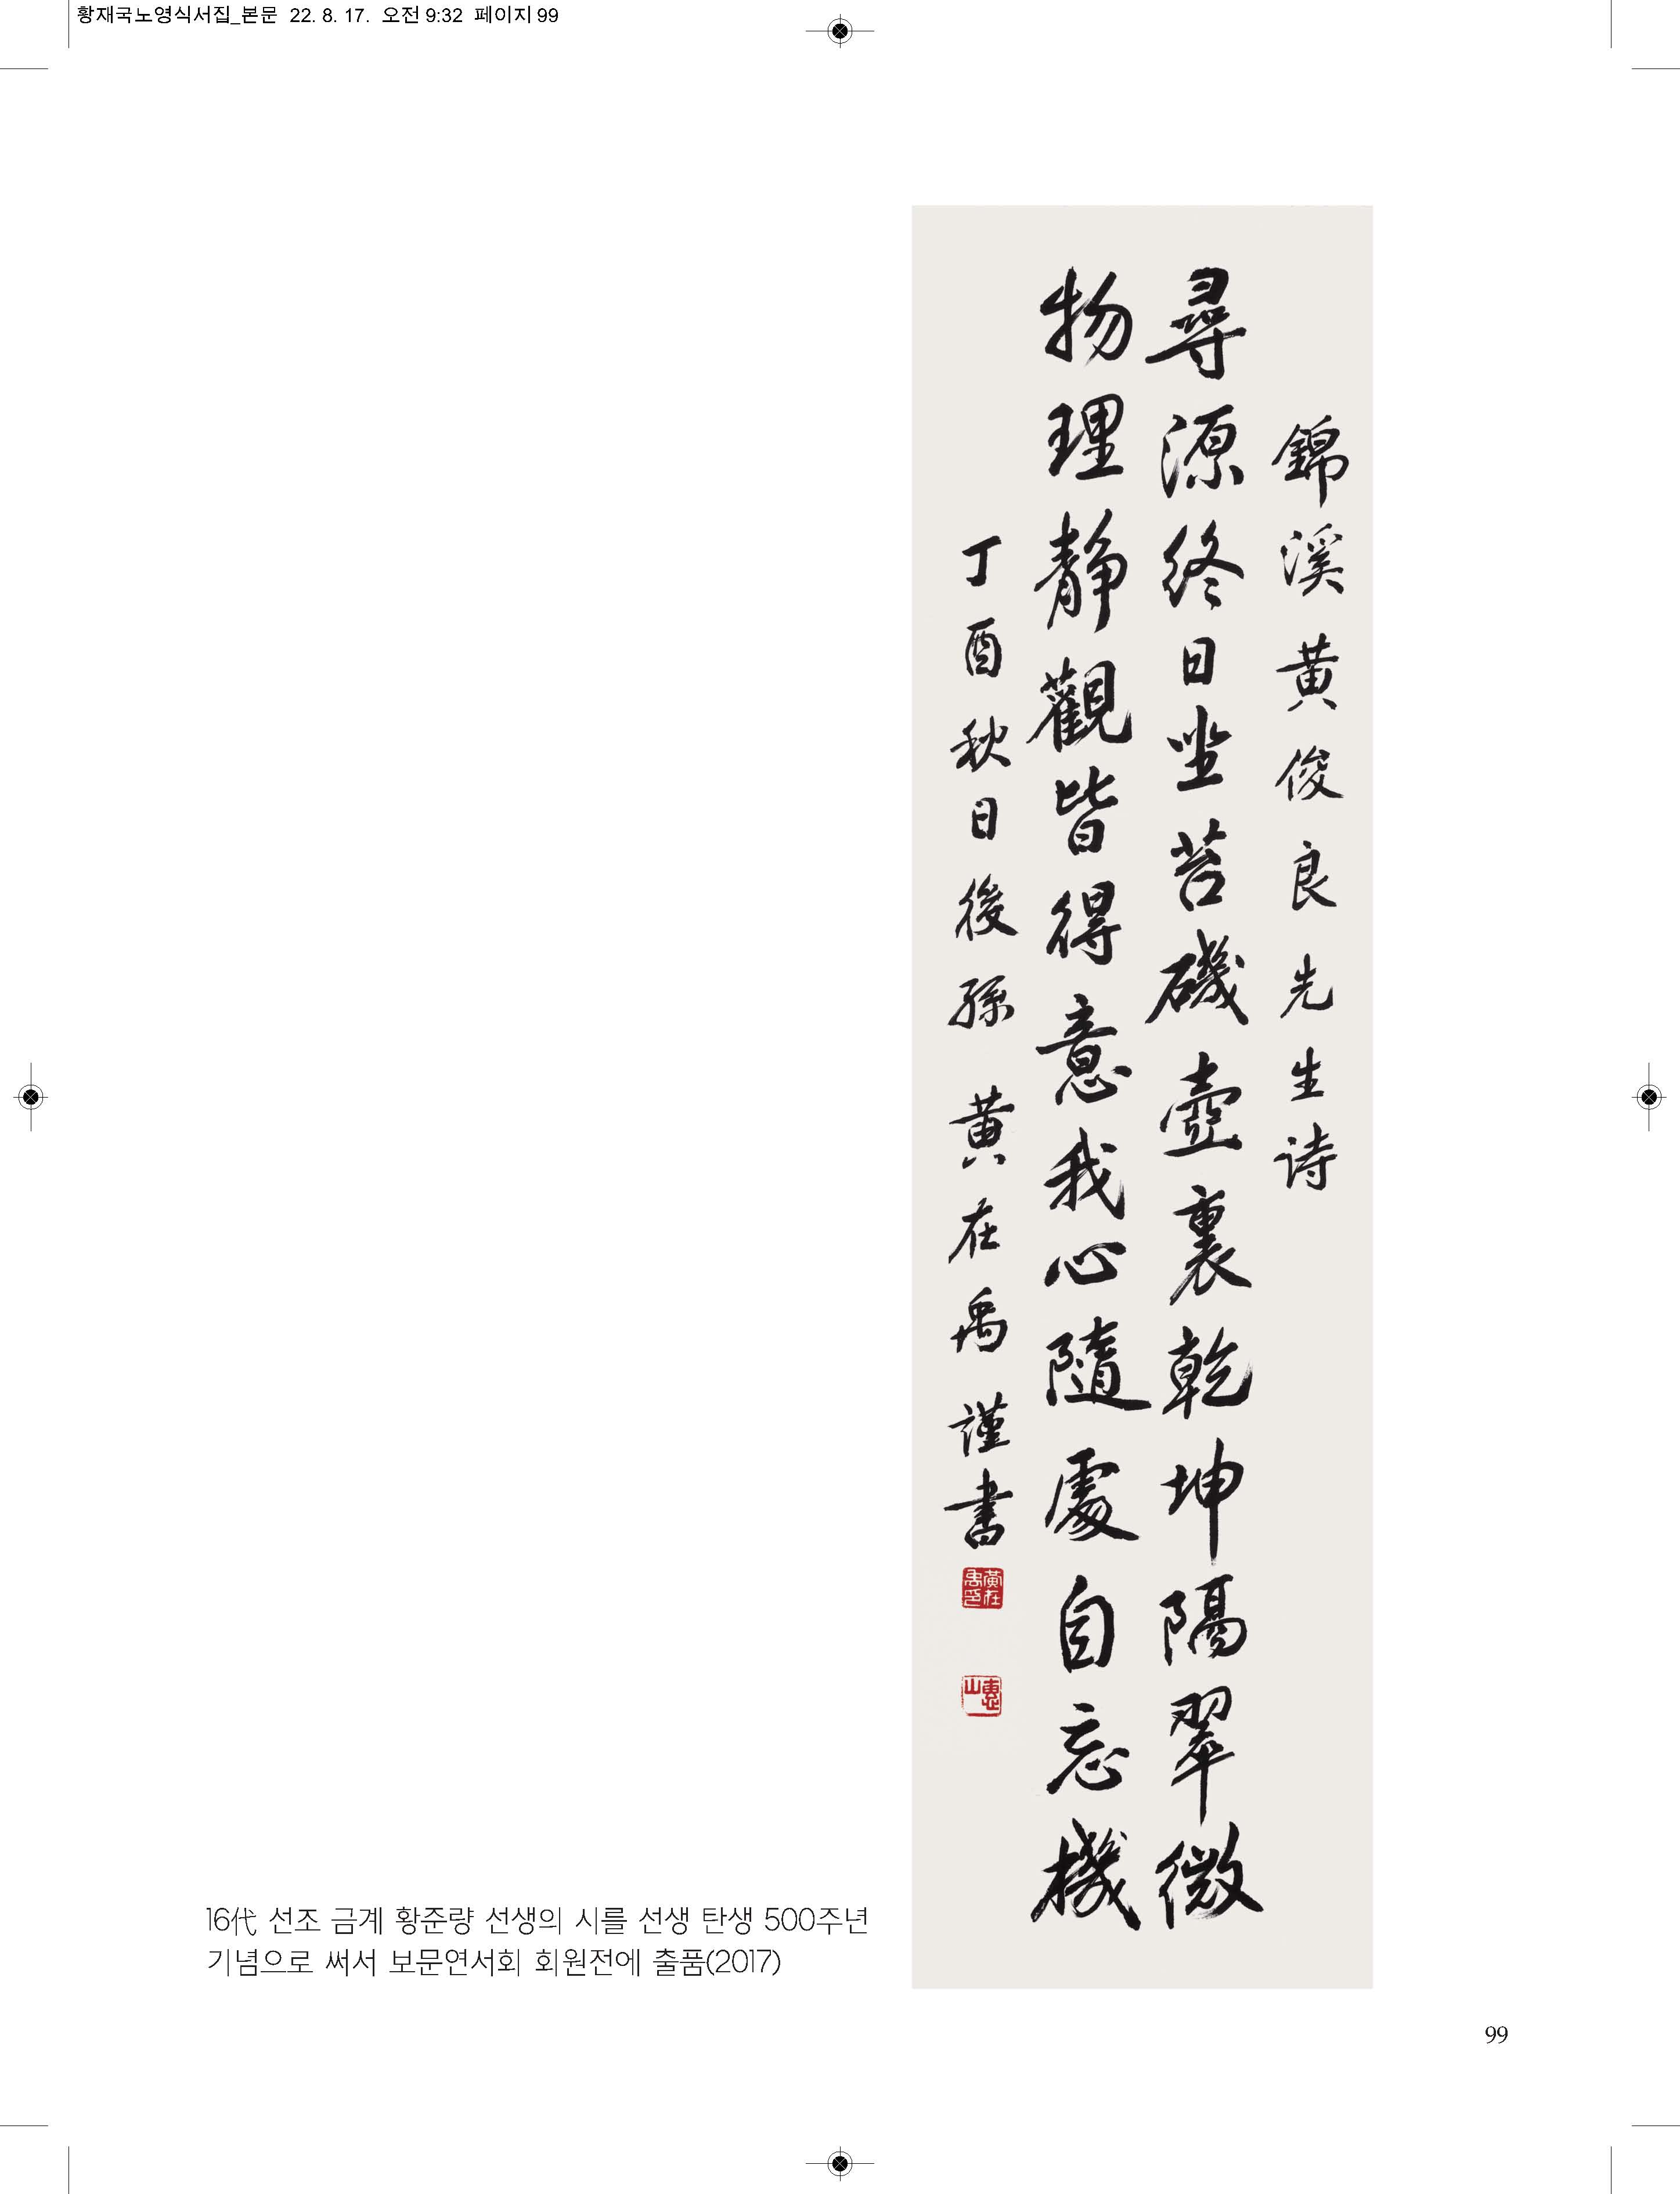 황재국노영식서집_본문 22. 8. 17. 오전 9:32 페이지 99
錦溪黃俊良先生诗
尋源終日坐苔磯壺裏乾坤隔翠微
物理靜觀皆得意我心隨處自忘機
丁酉秋日後孫 黃在禹 謹書
黃在禹印
惠山
16代 선조 금계 황준량 선생의 시를 선생 탄생 500주년
기념으로 써서 보문연서회 회원전에 출품(2017)
99